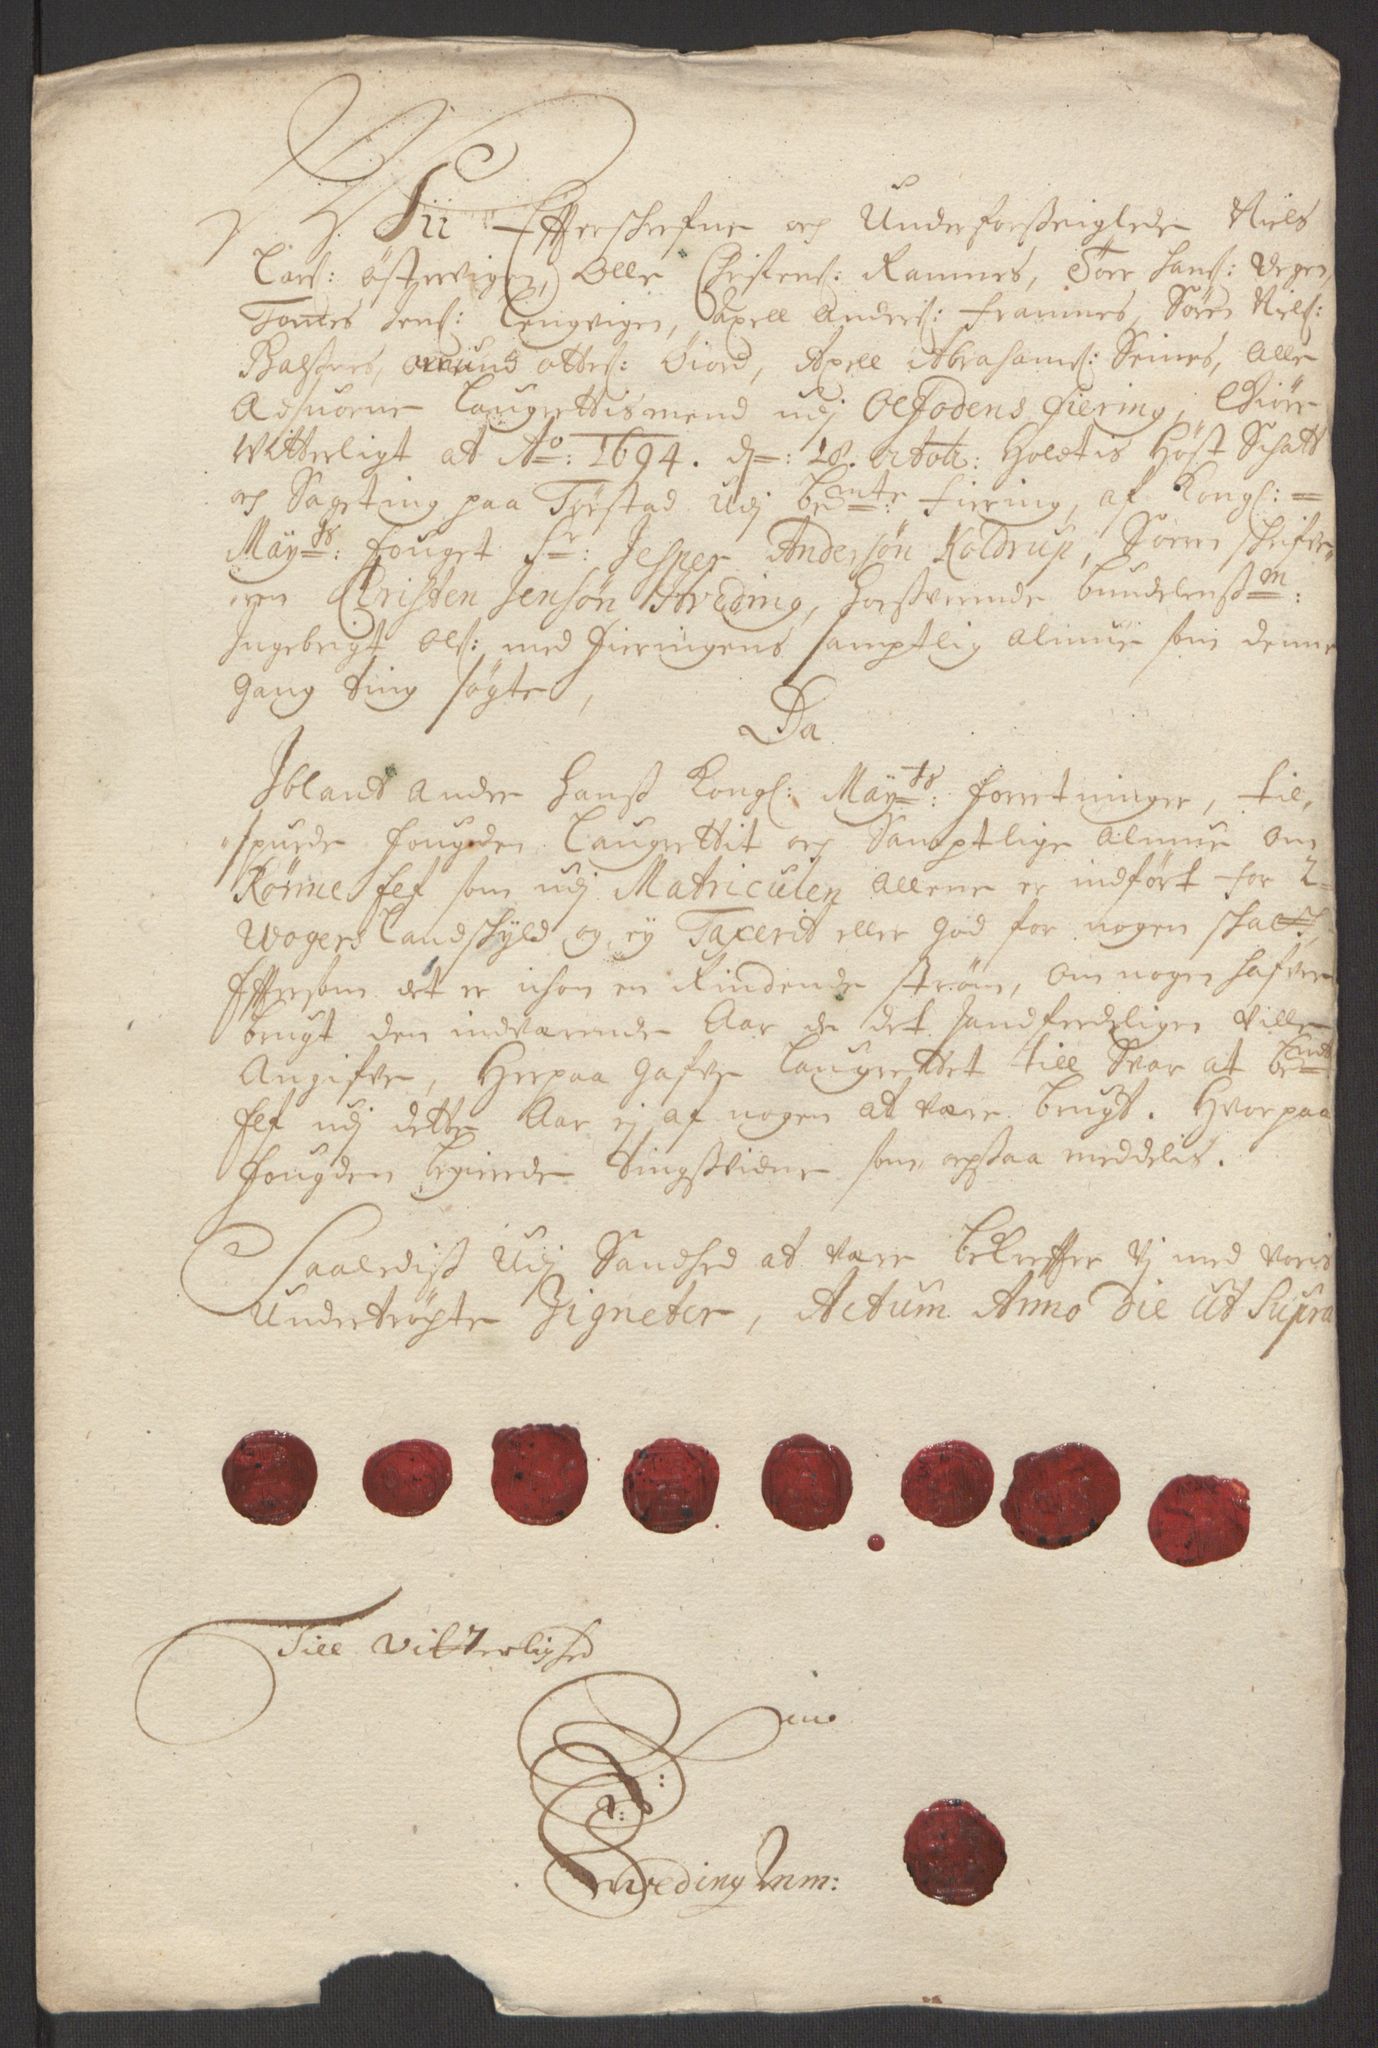 Vii Effterschrefne och Underforseiglede Niels
Lars: Östervigen, Olle Christens: Ramnes, Törr Hans:
Tomes Jens: Lengvigen, Axell Anders: Framnes, Sören Niels:
Balsnes, Amund Ottes: Diord, Axell Abrahams: Seines, Alle
Adsuorne Laugrettismend udj Ofodens fiering, Giöre
Witterligt at Ao: 1694. d: 18. octobr: Holdtis Höst Schatt
och Sageting paa Torstad Udj bemte: fiering, af Kongl:
Mayts: fouget Sr: Jesper Andersön Koldrup, Sorren schrifver
Christen Jensön Hveding, hossverende bundelenssm:
Ingebrigt Ols: med fieringens samptlig Almue som denne
gang ting sögte,
Da
Iblandt andre Hanss Kongl: Mayts: forretninger, til,
spurde fougden Laugrettit och Samptlige Almue om
Körme Elf som udj Matriculen Allene er indfört for 2
Woger Landschyld og ey Taxerit eller god for nogen schatt,
Effttersom det er ichon en Rindende ström, om nogen hafver
brugt den indværende Aar de det Sandferdeligen ville
Angifve, Herpaa gafve Laugrettet till Svar at bemte
Elf udj dette Aar ej af nogen at være brugt. Hvorpaa
fougden begierede tingssvidne som opssaa meddelis.
Saalediss Udj Sandhed at være bekreffter Vj med voris
Undertrögte Zigneter, Actum Anno Die ut Supra
Till vitterlighed
Hveding Mm: